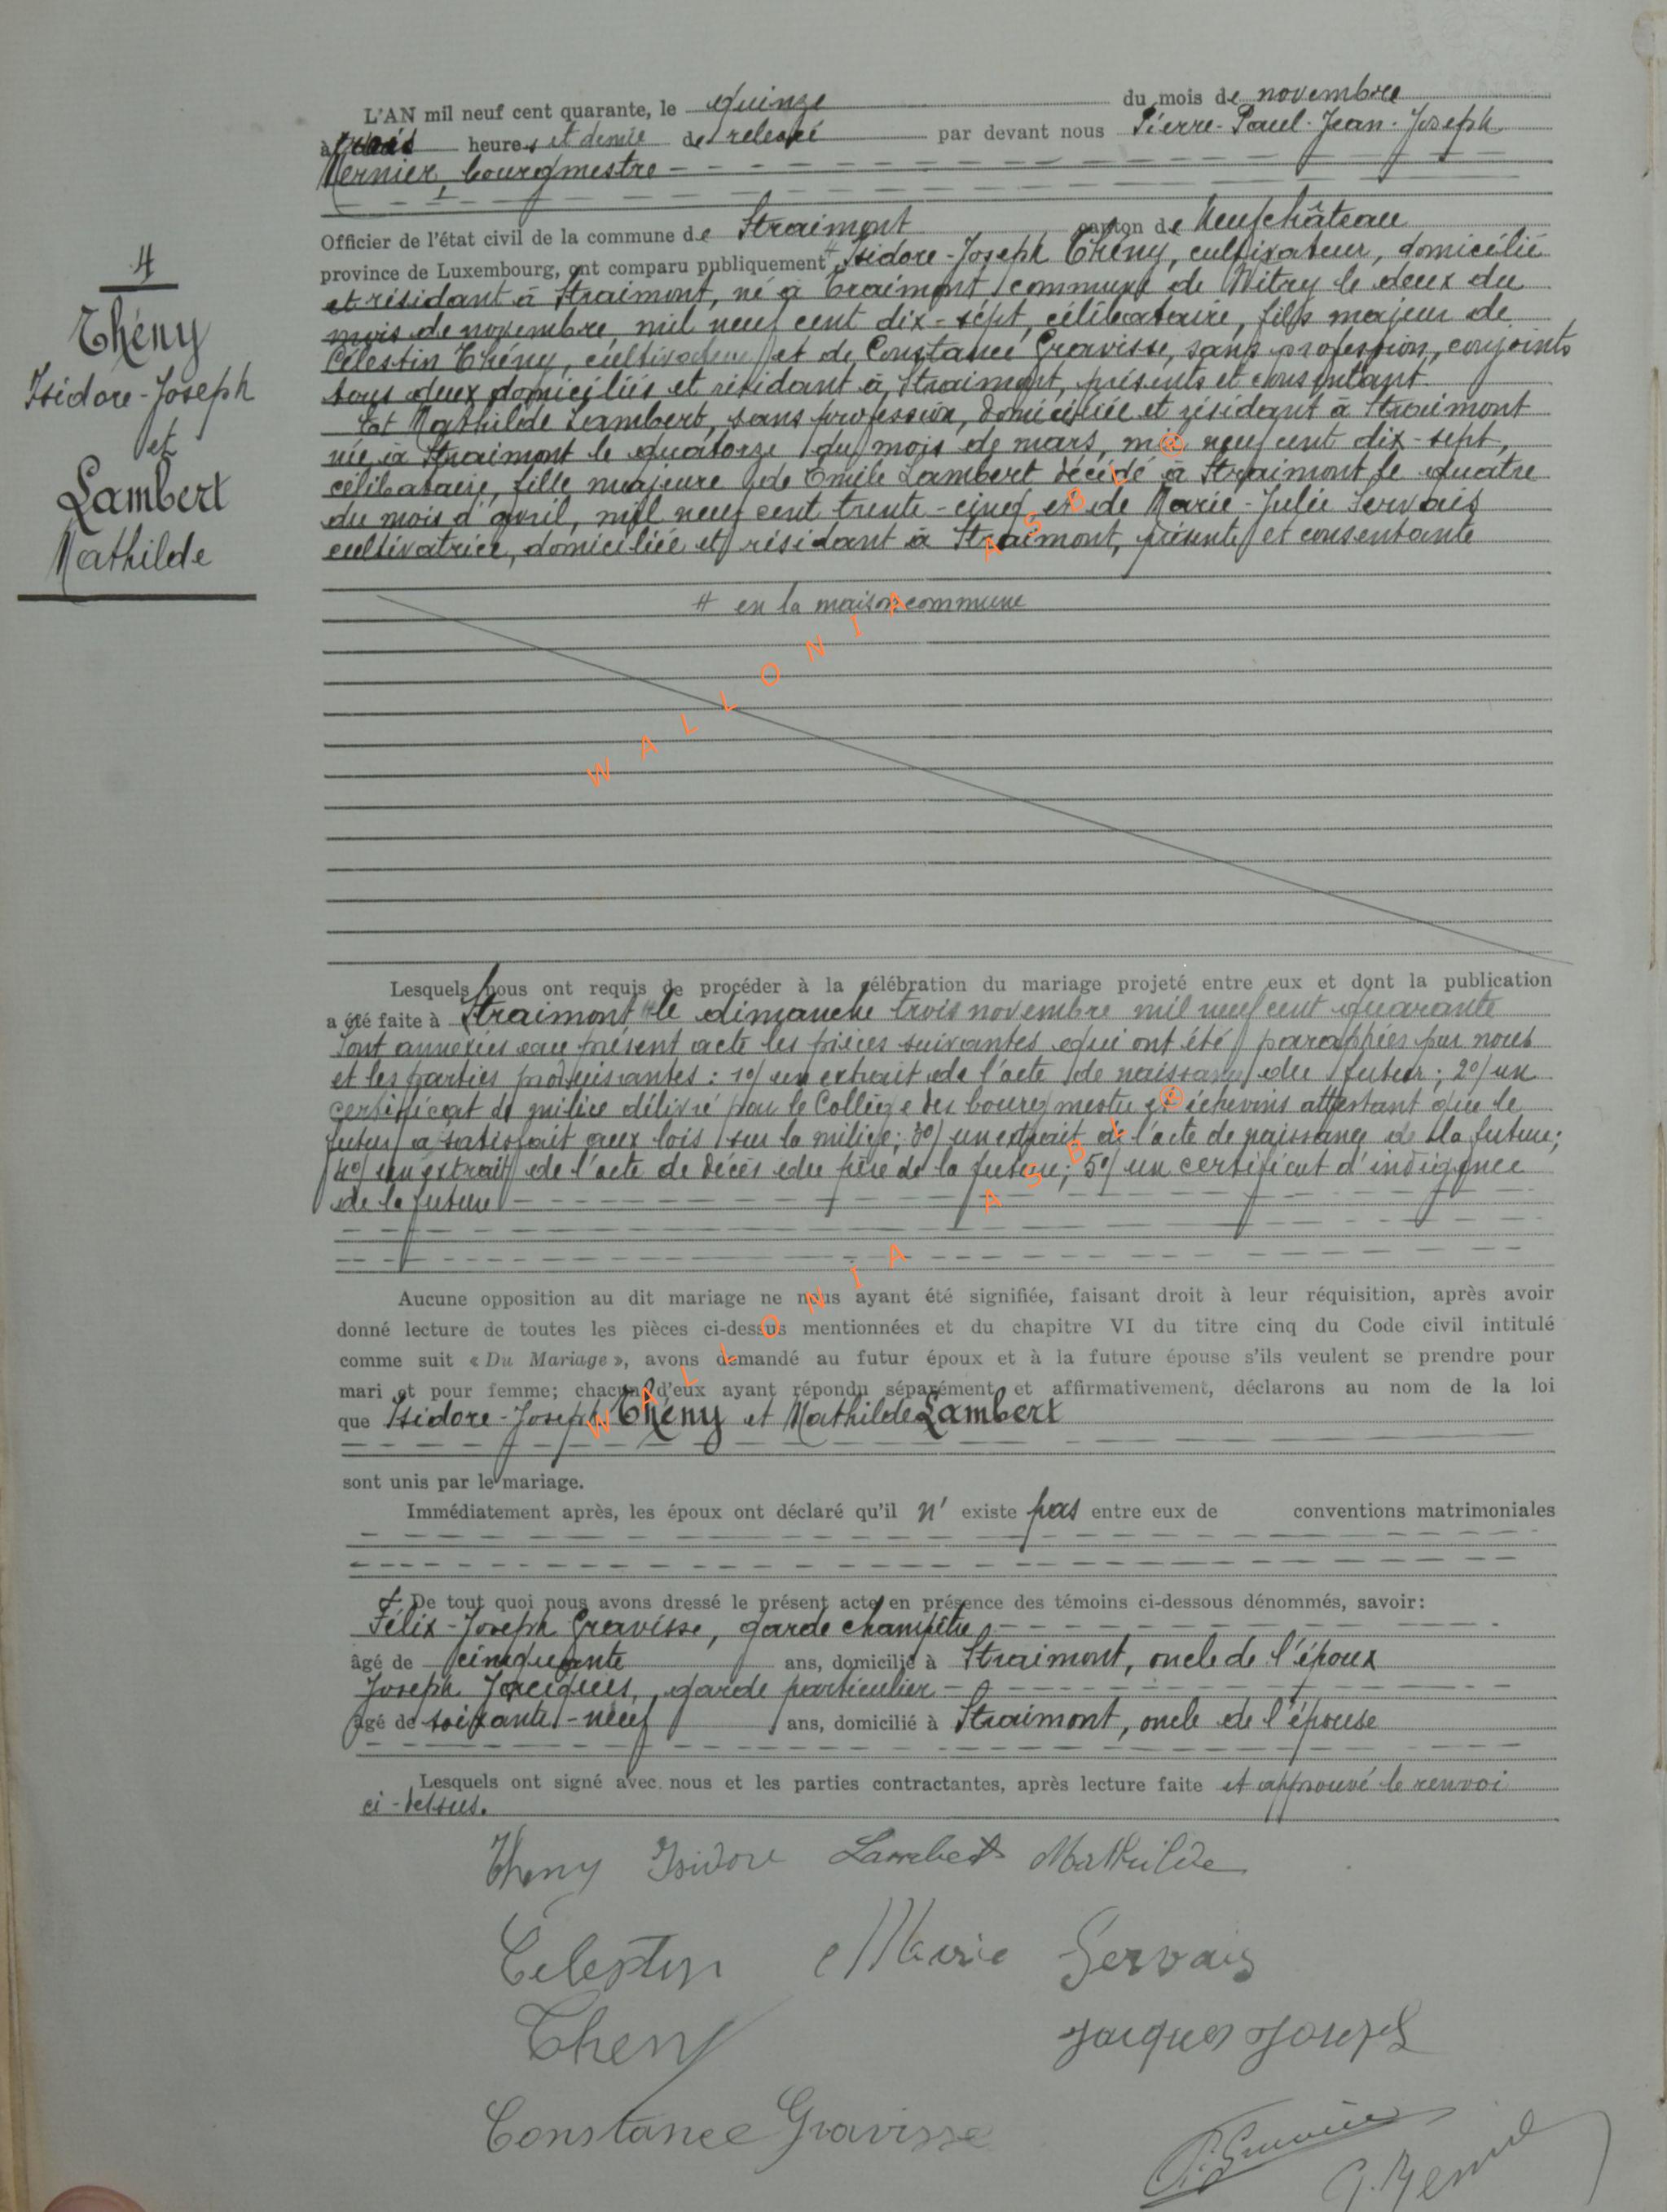 L'AN mil neuf cent quarante, le quinze du mois de novembre
à trois heures et demie de relevé par devant nous Pierre-Paul-Jean-Joseph
Mernier, bourgmestre
Officier de l'état civil de la commune de Straimont canton de Neufchâteau
4
province de Luxembourg, ont comparu publiquement # Isidore-Joseph Thény, cultivateur, domicilié
et résidant à Straimont, né à Traimont, commune de Witry le deux du
Thény
mois de novembre, mil neuf cent dix-sept, célibataire, fils majeur de
Célestin Thény, cultivateur, et de Constance Gravisse, sans profession, conjoints
Isidore-Joseph
tous deux domiciliés et résidant à Straimont, présents et consentant.
et
Et Mathilde Lambert, sans profession, domiciliée et résidant à Straimont
née à Straimont le quatorze du mois de mars, mil neuf cent dix-sept,
Lambert
célibataire, fille majeure de Emile Lambert décédé à Straimont le quatre
du mois d'avril, mil neuf cent trente-cinq et de Marie-Julie Servais
Mathilde
cultivatrice, domiciliée et résidant à Straimont, présente et consentante
# en la maison commune
WALLONIA ASBL @
Lesquels nous ont requis de procéder à la célébration du mariage projeté entre eux et dont la publication
a été faite à Straimont le dimanche trois novembre mil neuf cent quarante
Sont annexées au présent acte les pièces suivantes qui ont été paraphées par nous
et les parties produisantes : 1°/ un extrait de l'acte de naissance du futur ; 2°/ un
certificat de milice délivré par le Collège des bourgmestre et échevins attestant que le
futur a satisfait aux lois sur la milice; 3°/ un extrait de l'acte de naissance de la future;
4°/ un extrait de l'acte de décès du père de la future; 5°/ un certificat d'indigence
de la future
WALLONIA ASBL @
Aucune opposition au dit mariage ne nous ayant été signifiée, faisant droit à leur réquisition, après avoir
donné lecture de toutes les pièces ci-dessus mentionnées et du chapitre VI du titre cinq du Code civil intitulé
comme suit « Du Mariage », avons demandé au futur époux et à la future épouse s'ils veulent se prendre pour
mari et pour femme; chacun d'eux ayant répondu séparément et affirmativement, déclarons au nom de la loi
que Isidore-Joseph Thény et Mathilde Lambert
sont unis par le mariage.
Immédiatement après, les époux ont déclaré qu'il n' existe pas entre eux de conventions matrimoniales
De tout quoi nous avons dressé le présent acte en présence des témoins ci-dessous dénommés, savoir:
Félix-Joseph Gravisse, garde champêtre
âgé de cinquante ans, domicilié à Straimont, oncle de l'époux
Joseph Jacques, garde particulier
âgé de soixante-neuf ans, domicilié à Straimont, oncle de l'épouse
Lesquels ont signé avec nous et les parties contractantes, après lecture faite et approuvé le renvoi
ci-dessus.
Theny Isidore Lambert Mathilde
Celestin Marie Servais
Theny Jacques Joseph
Constance Gravisse